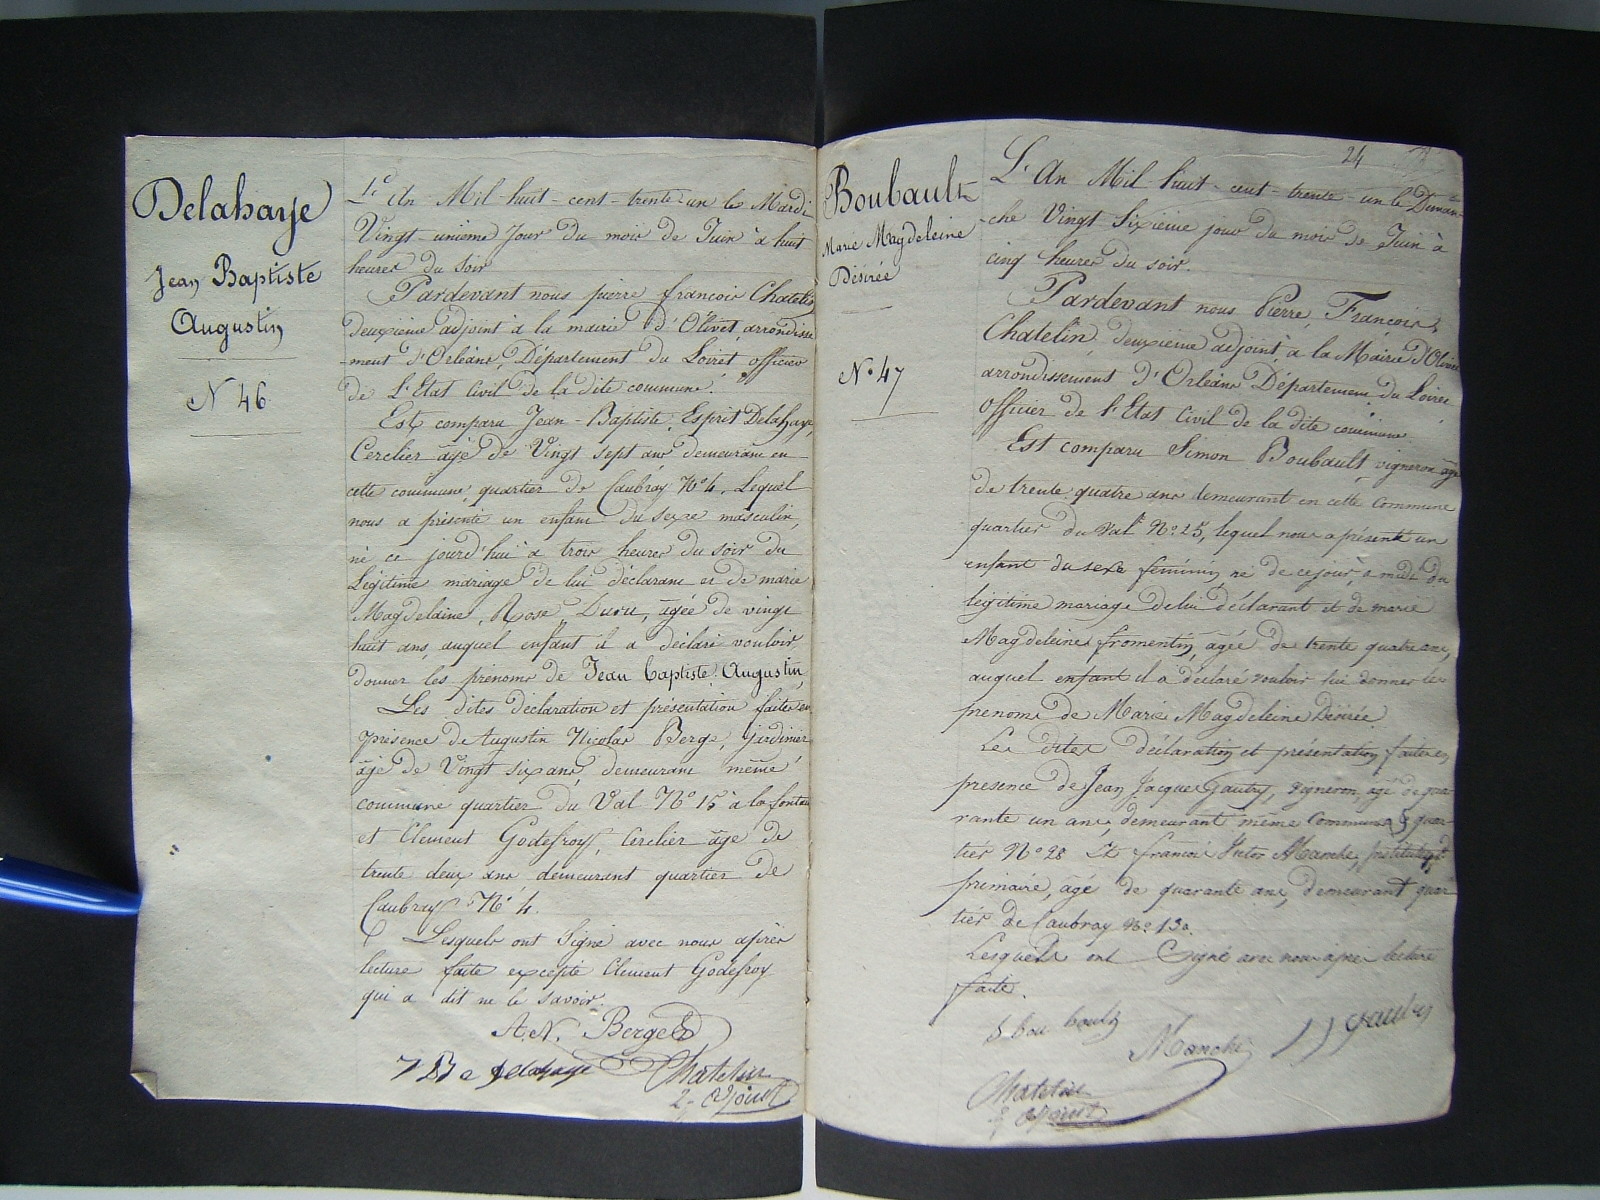 Delahaye
Jean Baptiste
Augustin
N 46
L'An Mil huit-cent-trente-un le Mardi
Vingt-unieme Jour du mois de Juin à huit
heures du soir
Pardevant nous pierre françois Chatelin
deuxième adjoint à la mairie d'Olivet, arrondisse
-ment d'Orléans, Département du Loiret officier
de l'Etat Civil de la dite commune.
Est comparu Jean-Baptiste Esprit Delahaye,
Cerclier âgé de Vingt sept ans demeurant en
cette commune, quartier de Caubray N° 4. Lequel
nous a présenté un enfant du sexe masculin,
né ce jourd'hui à trois heures du soir du
Légitime mariage de lui déclarant et de marie
Magdelaine, Rose, Duru, âgée de vingt
huit ans, auquel enfant il a déclaré vouloir
donner les prénoms de Jean baptiste Augustin,
Les dites déclaration et présentation faites en
présence de Augustin Nicolas Berge, jardinier
âgé de Vingt six ans, demeurant même
commune quartier du Val N° 15 à la fontaine
et Clement Godefroy, Cerclier âgé de
trente deux ans demeurant quartier de
Caubray N° 4.
Lesquels ont Signé avec nous après
lecture faite excepté Clement Godefroy
qui a dit ne le savoir.
A.N. Berge
Delahaye Chatelin
2e adjoint
24
Boubault
Marie Magdeleine
Désirée
N° 47
L'An Mil huit-cent-trente-un le Diman-
che Vingt Sixieme jour du mois de Juin à
cinq heures du soir.
Pardevant nous Pierre, François,
Chatelin, deuxieme adjoint à la Mairie d'Olivet
arrondissement d'Orléans Département du Loiret
officier de l'Etat Civil de la dite commune.
Est comparu Simon Boubault, vigneron âgé
de trente quatre ans demeurant en cette Commune
quartier du Val N° 25, lequel nous a présenté un
enfant du sexe féminin né de ce jour, à midi du
légitime mariage de lui déclarant et de marie
Magdeleine fromentin, âgée de trente quatre ans,
auquel enfant il a déclaré vouloir lui donner les
prenoms de Marie Magdeleine Désirée
Les dites déclaration et présentation faites en
presence de Jean Jacque Gautry, vigneron, âgé de qua-
rante un ans, demeurant même Commune quar-
tier N° 28 Et françois Victor Manche, instituteur
primaire, âgé de quarante ans, demeurant quar
tier de Caubray N° 13.
Lesquels ont Signé avec nous après lecture
faite.
S bou boult
Manche JJ gautry
Chatelin
2e adjoint